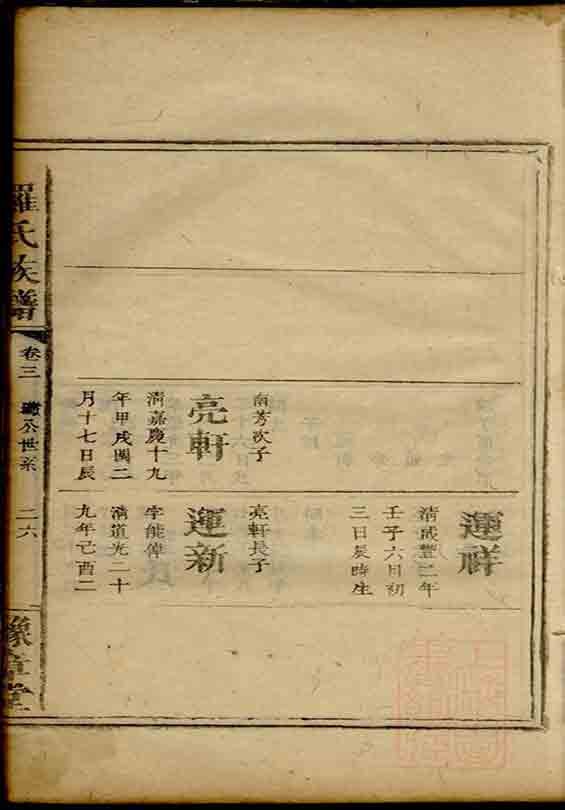 運祥
清咸豐二年
壬子六月初
三日辰時生
南芳次子
亮軒
清嘉慶十九
年甲戌閏二
月十七日辰
亮軒長子
運新
字能偉
清道光二十
九年己酉二
羅氏族譜
卷三
公世系
二六
豫章堂